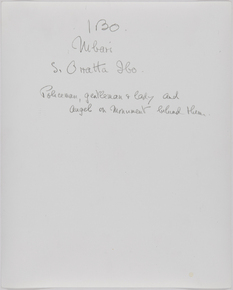 IBO.
Mbari
S. Oratta Ibo.
Policeman, gentleman & lady and
angel on Monument behind them.